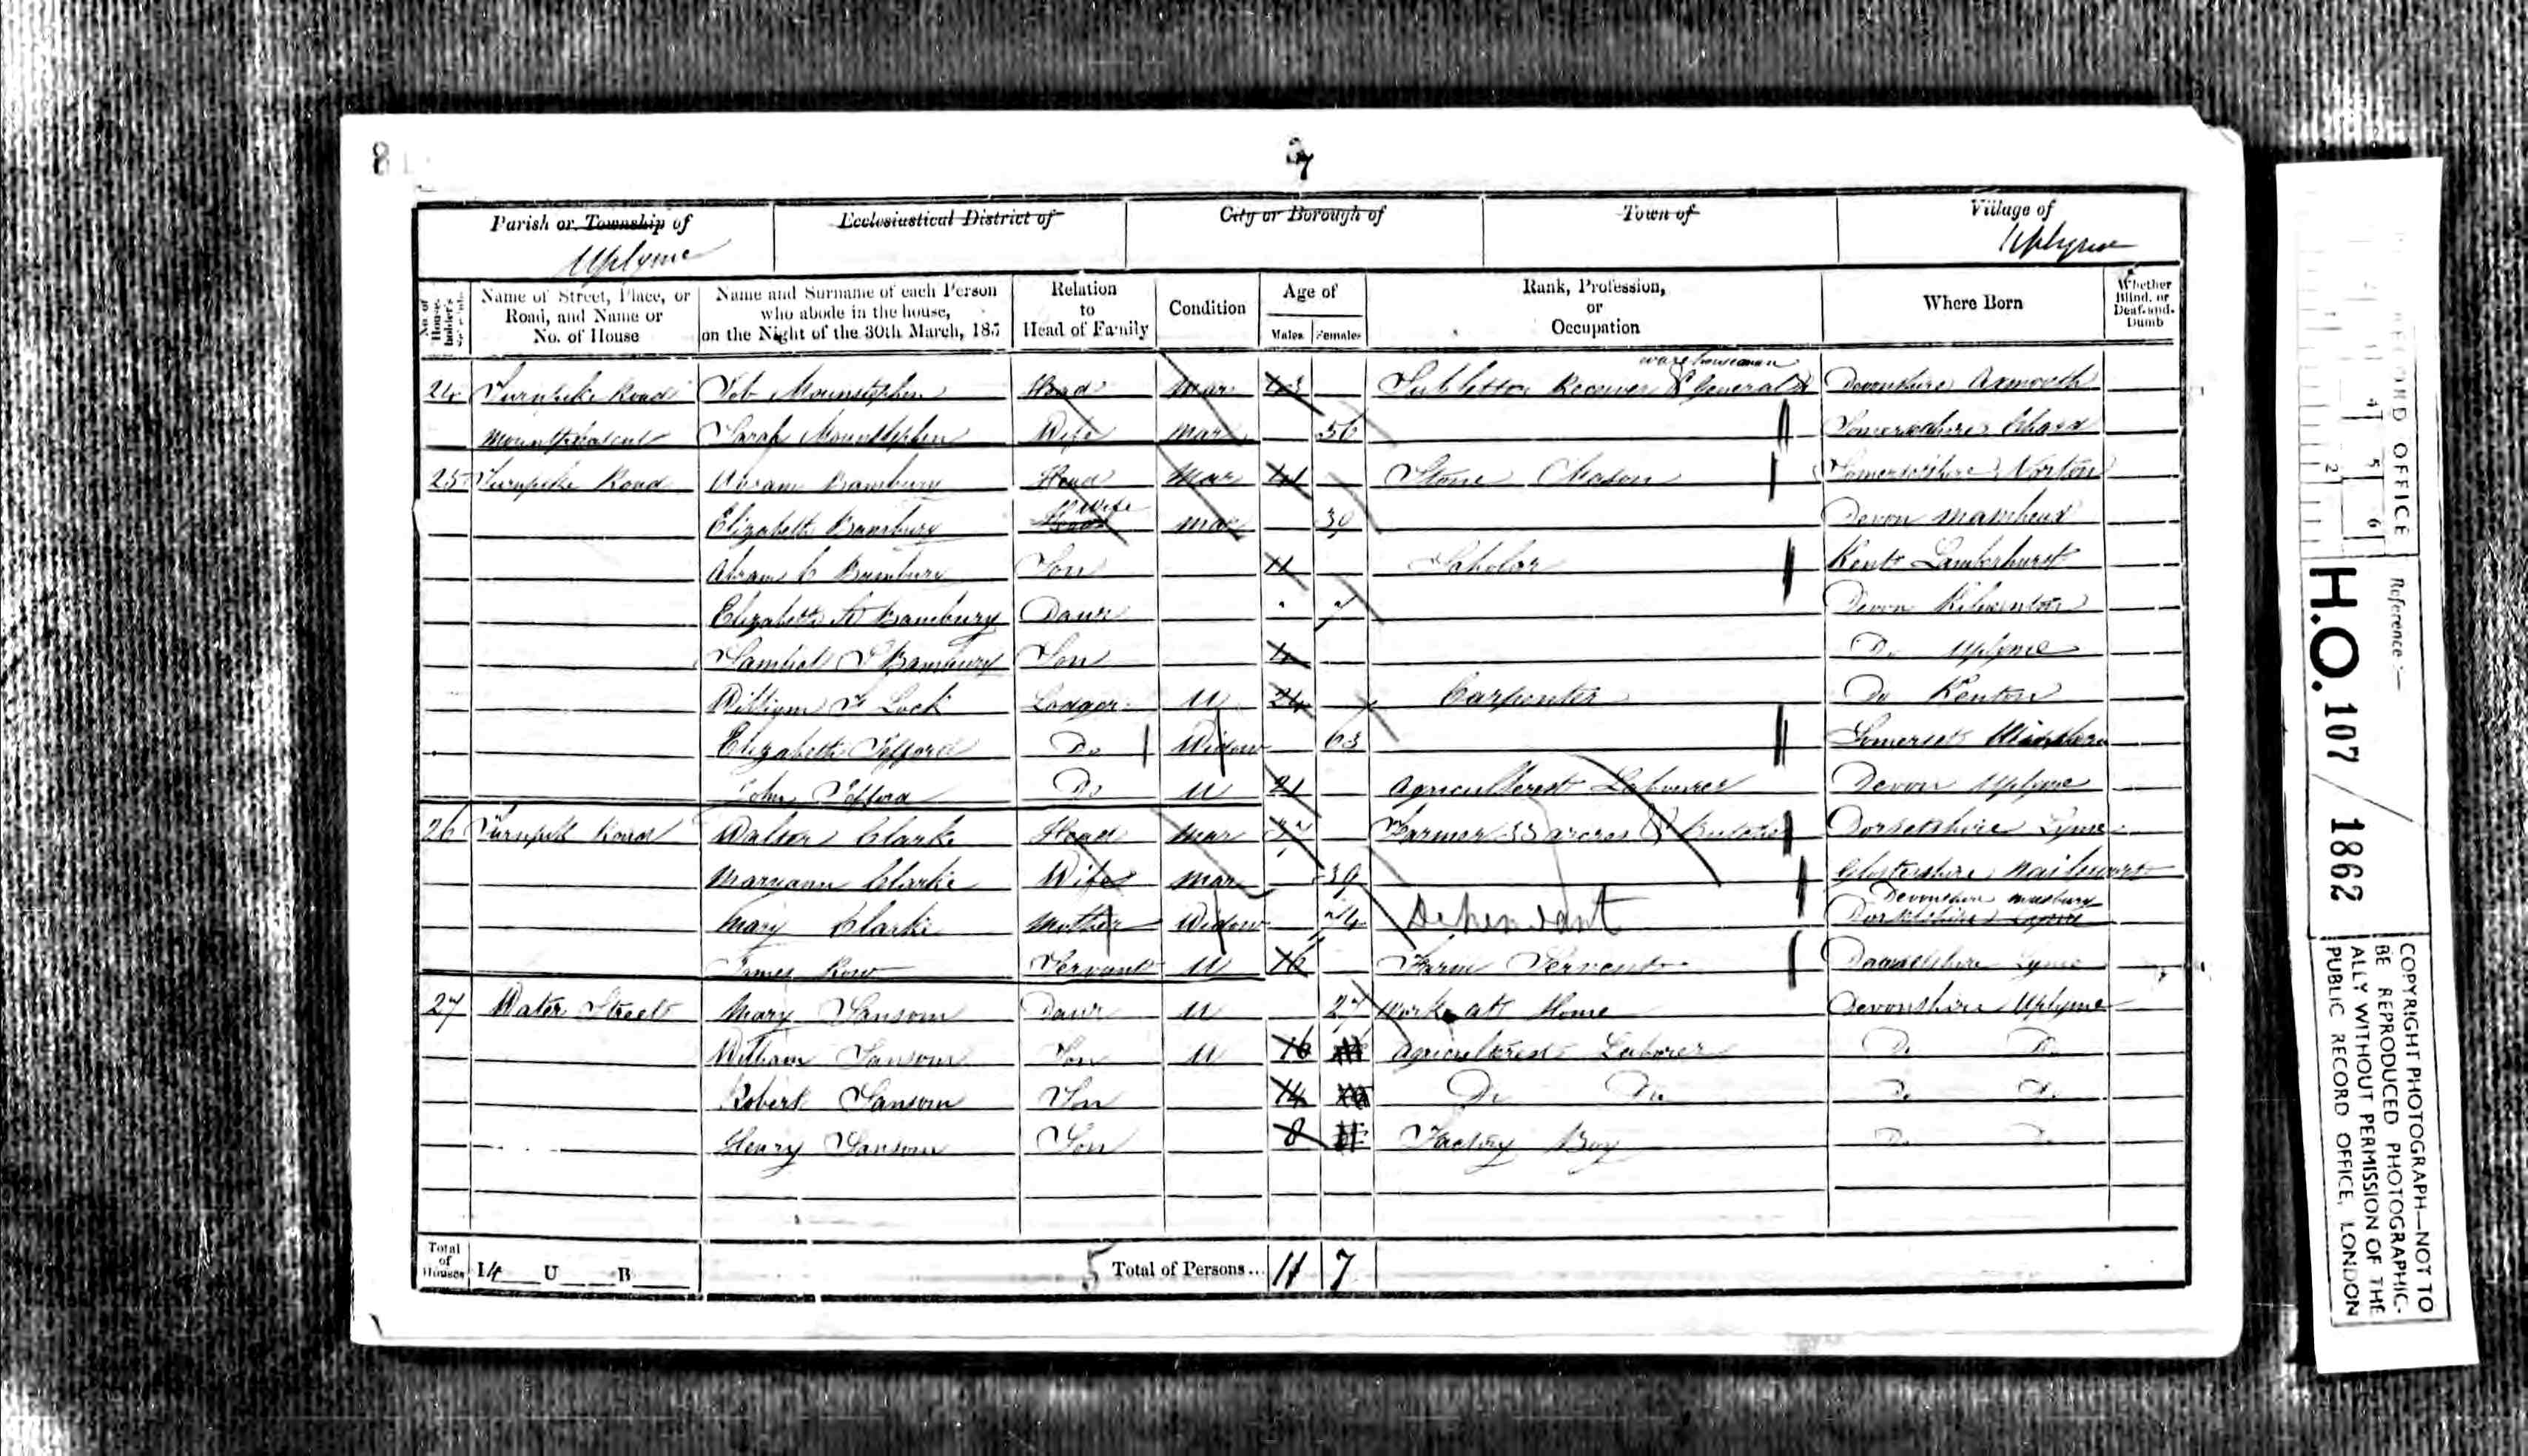 7
Parish or Township of Ecclesiastical District of City or Borough of Town of Village of
Uplyme Uplyme
No. of House-holder's Schedule
Name of Street, Place, or Road, and Name or No. of House
Name and Surname of each Person who abode in the house, on the Night of the 30th March, 185
Relation to Head of Family
Condition
Age of
Males Females
Rank, Profession, or Occupation
Where Born
Whether Blind, or Deaf-and-Dumb
warehouseman
24 Turnpike Road Job Mounstephen Head Mar Receiver & General Devonshire Axmouth
Sarah Mounstephen Wife Mar 56 Somersetshire Chard
25 Turnpike Road Abram Bambury Head Mar 41 Stone Mason Somersetshire Norton
Wife
Elizabeth Bambury Head Mar 39 Devon Mamhead
Abram C Bambury Son 11 Scholar Kent Lamberhurst
Elizabeth A Bambury Daur 7 Devon
Samuel Bambury Son 4 Do Uplyme
William Lock Lodger U 24 Carpenter Do Kenton
Elizabeth Do Widow 63 Somerset
John Do U 21 Labourer Devon Uplyme
26 Turnpike Road Walter Clarke Head Mar 37 Farmer 33 acres & Butcher Dorsetshire Lyme
Maryann Clarke Wife Mar 39 Glostershire
Devonshire Musbury
Mary Clarke Mother Widow 74 Dependant Dorsetshire Lyme
James Row Servant U 16 Farm Servant Lyme
27 Water Street Mary Sansom Daur U 27 Work at Home Devonshire Uplyme
William Sansom Son U 16 Laborer Do Do
Robert Sansom Son 14 Do Do Do Do
Henry Sansom Son 8 Factory Boy Do Do
Total of Houses 14 U B 5 Total of Persons... 11 7
RECORD OFFICE
Reference:—
H.O. 107 / 1862
COPYRIGHT PHOTOGRAPH—NOT TO
BE REPRODUCED PHOTOGRAPHIC-
ALLY WITHOUT PERMISSION OF THE
PUBLIC RECORD OFFICE, LONDON